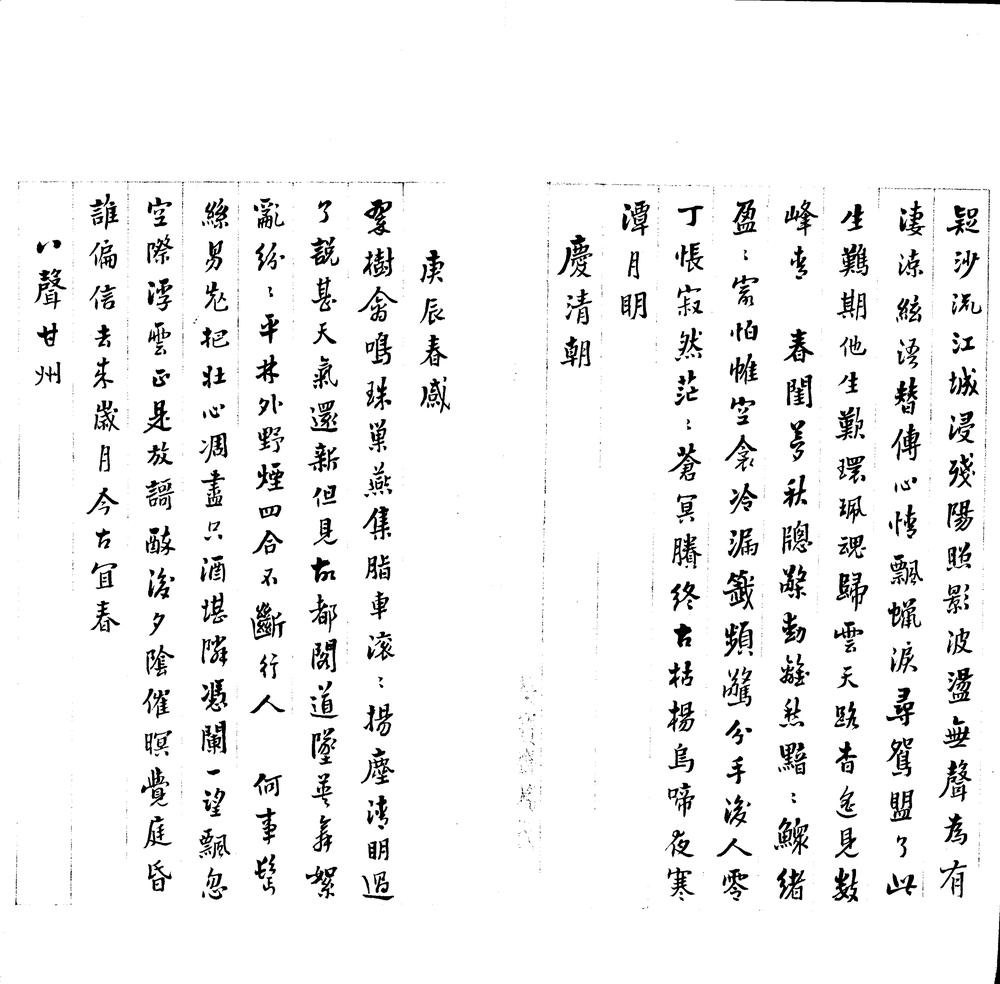 疑沙流江城浸殘陽照影波盪無聲為有
淒涼絃語替傳心情飄蠟淚尋鴛盟了此
生難期他生歎環珮魂歸雲天路杳遙見數
峰青　春閨夢秋牕槃動離愁黯〻鰥緒
盈〻窗怕帷空衾冷漏籤頻驚分手後人零
丁悵寂然茫〻蒼冥賸終古枯楊烏啼夜寒
潭月明
慶清朝
庚辰春感
翠樹禽鳴珠巢燕集脂車滾〻揚塵清明過
了說甚天氣還新但見故都閣道墜英舞絮
亂紛〻平林外野煙四合不斷行人　何事鬢
絲易老把壯心凋盡只酒堪隣憑闌一望飄忽
空際浮雲正是放謌酔後夕陰催暝覺庭昏
誰偏信去來歲月今古宜春
八聲甘州